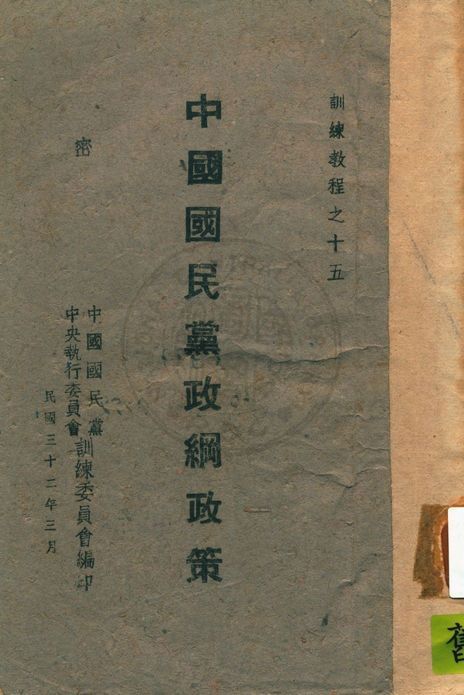 訓練教程之十五
中國國民黨政綱政策
密
中國國民黨
中央執行委員會
訓練委員會編印
民國三十二年三月
舊